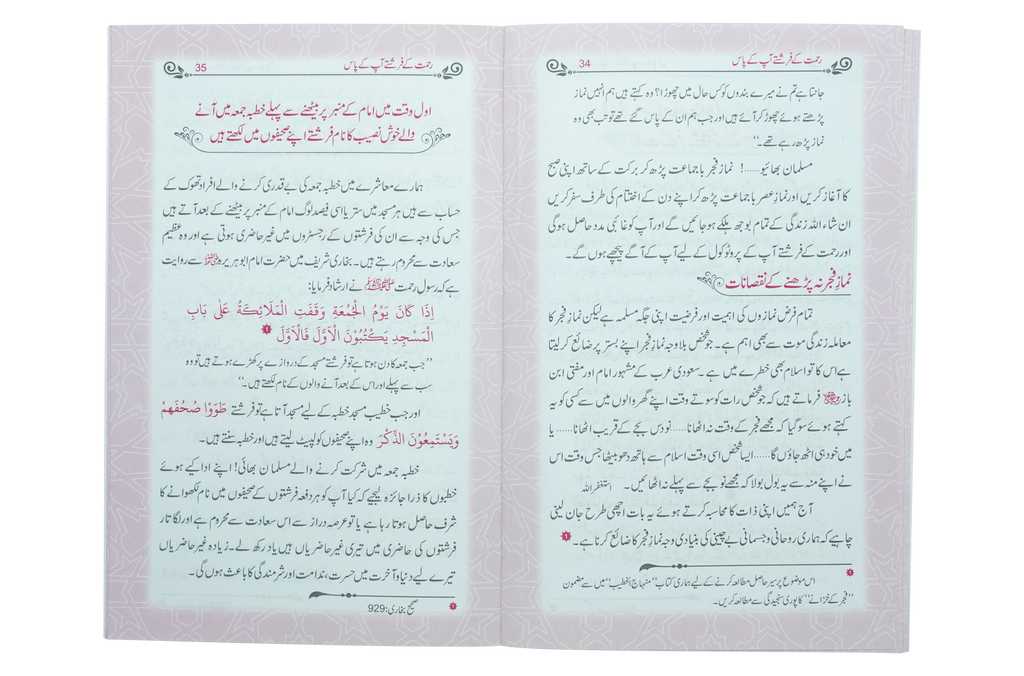 رحمت کے فرشتے آپ کے پاس 34
جانتا ہے تم نے میرے بندوں کو کس حال میں چھوڑا؟ وہ کہتے ہیں ہم انہیں نماز
پڑھتے ہوئے چھوڑ کر آئے ہیں اور جب ہم ان کے پاس گئے تھے تو تب بھی وہ
نماز پڑھ رہے تھے۔‘‘
مسلمان بھائیو……! نماز فجر باجماعت پڑھ کر برکت کے ساتھ اپنی صبح
کا آغاز کریں اور نمازِ عصر باجماعت پڑھ کر اپنے دن کے اختتام کی طرف سفر کریں
ان شاء اللہ زندگی کے تمام بوجھ ہلکے ہو جائیں گے اور آپ کو غائبی مدد حاصل ہوگی
اور رحمت کے فرشتے آپ کے پروٹوکول کے لیے آپ کے آگے پیچھے ہوں گے۔
نمازِ فجر نہ پڑھنے کے نقصانات
تمام فرض نمازوں کی اہمیت اور فرضیت اپنی جگہ مسلمہ ہے لیکن نمازِ فجر کا
معاملہ زندگی موت سے بھی اہم ہے۔ جو شخص بلاوجہ نمازِ فجر اپنے بستر پر ضائع کر لیتا
ہے اس کا تو اسلام بھی خطرے میں ہے۔ سعودی عرب کے مشہور امام اور مفتی ابن
باز رحمہ اللہ فرماتے ہیں کہ جو شخص رات کو سوتے وقت اپنے گھر والوں میں سے کسی کو یہ
کہتے ہوئے سو گیا کہ مجھے فجر کے وقت نہ اٹھانا……نو دس بجے کے قریب اٹھانا……یا
میں خود ہی اٹھ جاؤں گا……ایسا شخص اسی وقت اسلام سے ہاتھ دھو بیٹھا جس وقت اس
نے اپنے منہ سے یہ بول بولا کہ مجھے نو بجے سے پہلے نہ اٹھائیں۔ استغفر اللہ
آج ہمیں اپنی ذات کا محاسبہ کرتے ہوئے یہ بات اچھی طرح جان لینی
چاہیے کہ ہماری روحانی و جسمانی بے چینی کی بنیادی وجہ نمازِ فجر کا ضائع کرنا ہے۔ ❶
❶ اس موضوع پر سیر حاصل مطالعہ کرنے کے لیے ہماری کتاب ’’منہاج الخطیب‘‘ میں سے مضمون
’’فجر کے خزانے‘‘ کا پوری سنجیدگی سے مطالعہ کریں۔
رحمت کے فرشتے آپ کے پاس 35
اول وقت میں امام کے منبر پر بیٹھنے سے پہلے خطبہ جمعہ میں آنے
والے خوش نصیب کا نام فرشتے اپنے صحیفوں میں لکھتے ہیں
ہمارے معاشرے میں خطبہ جمعہ کی بے قدری کرنے والے افراد تھوک کے
حساب سے ہیں ہر مسجد میں ستر یا اسی فیصد لوگ امام کے منبر پر بیٹھنے کے بعد آتے ہیں
جس کی وجہ سے ان کی فرشتوں کے رجسٹروں میں غیر حاضری ہوتی ہے اور وہ عظیم
سعادت سے محروم رہتے ہیں۔ بخاری شریف میں حضرت امام ابو ہریرہ رضی اللہ عنہ سے روایت
ہے کہ رسول رحمت ﷺ نے ارشاد فرمایا:
إِذَا كَانَ يَوْمُ الْجُمُعَةِ وَقَفَتِ الْمَلَائِكَةُ عَلٰى بَابِ
الْمَسْجِدِ يَكْتُبُوْنَ الْاَوَّلَ فَالْاَوَّلَ ❶
’’جب جمعہ کا دن ہوتا ہے تو فرشتے مسجد کے دروازے پر کھڑے ہوتے ہیں تو وہ
سب سے پہلے اور اس کے بعد آنے والوں کے نام لکھتے ہیں۔‘‘
اور جب خطیب مسجد خطبہ کے لیے مسجد آتا ہے تو فرشتے طَوَوْا صُحُفَهُمْ
وَيَسْتَمِعُوْنَ الذِّكْرَ وہ اپنے صحیفوں کو لپیٹ لیتے ہیں اور خطبہ سنتے ہیں۔
خطبہ جمعہ میں شرکت کرنے والے مسلمان بھائی! اپنے ادا کیے ہوئے
خطبوں کا ذرا جائزہ لیجیے کہ کیا آپ کو ہر دفعہ فرشتوں کے صحیفوں میں نام لکھوانے کا
شرف حاصل ہوتا رہا ہے یا تو عرصہ دراز سے اس سعادت سے محروم ہے اور لگاتار
فرشتوں کی حاضری میں تیری غیر حاضریاں ہیں یاد رکھ لے۔ زیادہ غیر حاضریاں
تیرے لیے دنیا و آخرت میں حسرت، ندامت اور شرمندگی کا باعث ہوں گی۔
❶ صحیح بخاری: 929